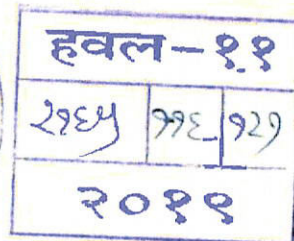 हवल-११
२१६५ ११६ १२१
२०१९